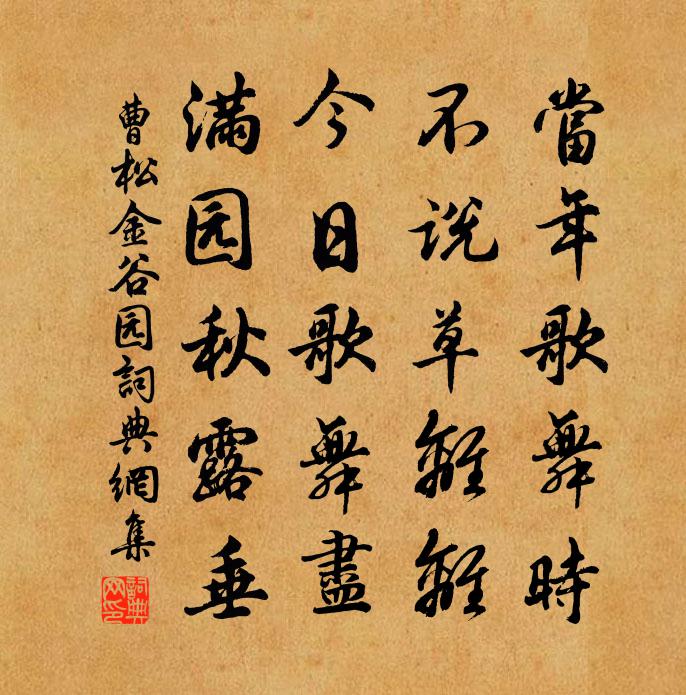 當年歌舞時
不说草離離
今日歌舞盡
满园秋露垂
曹松金谷园詞典網集
詞典网印